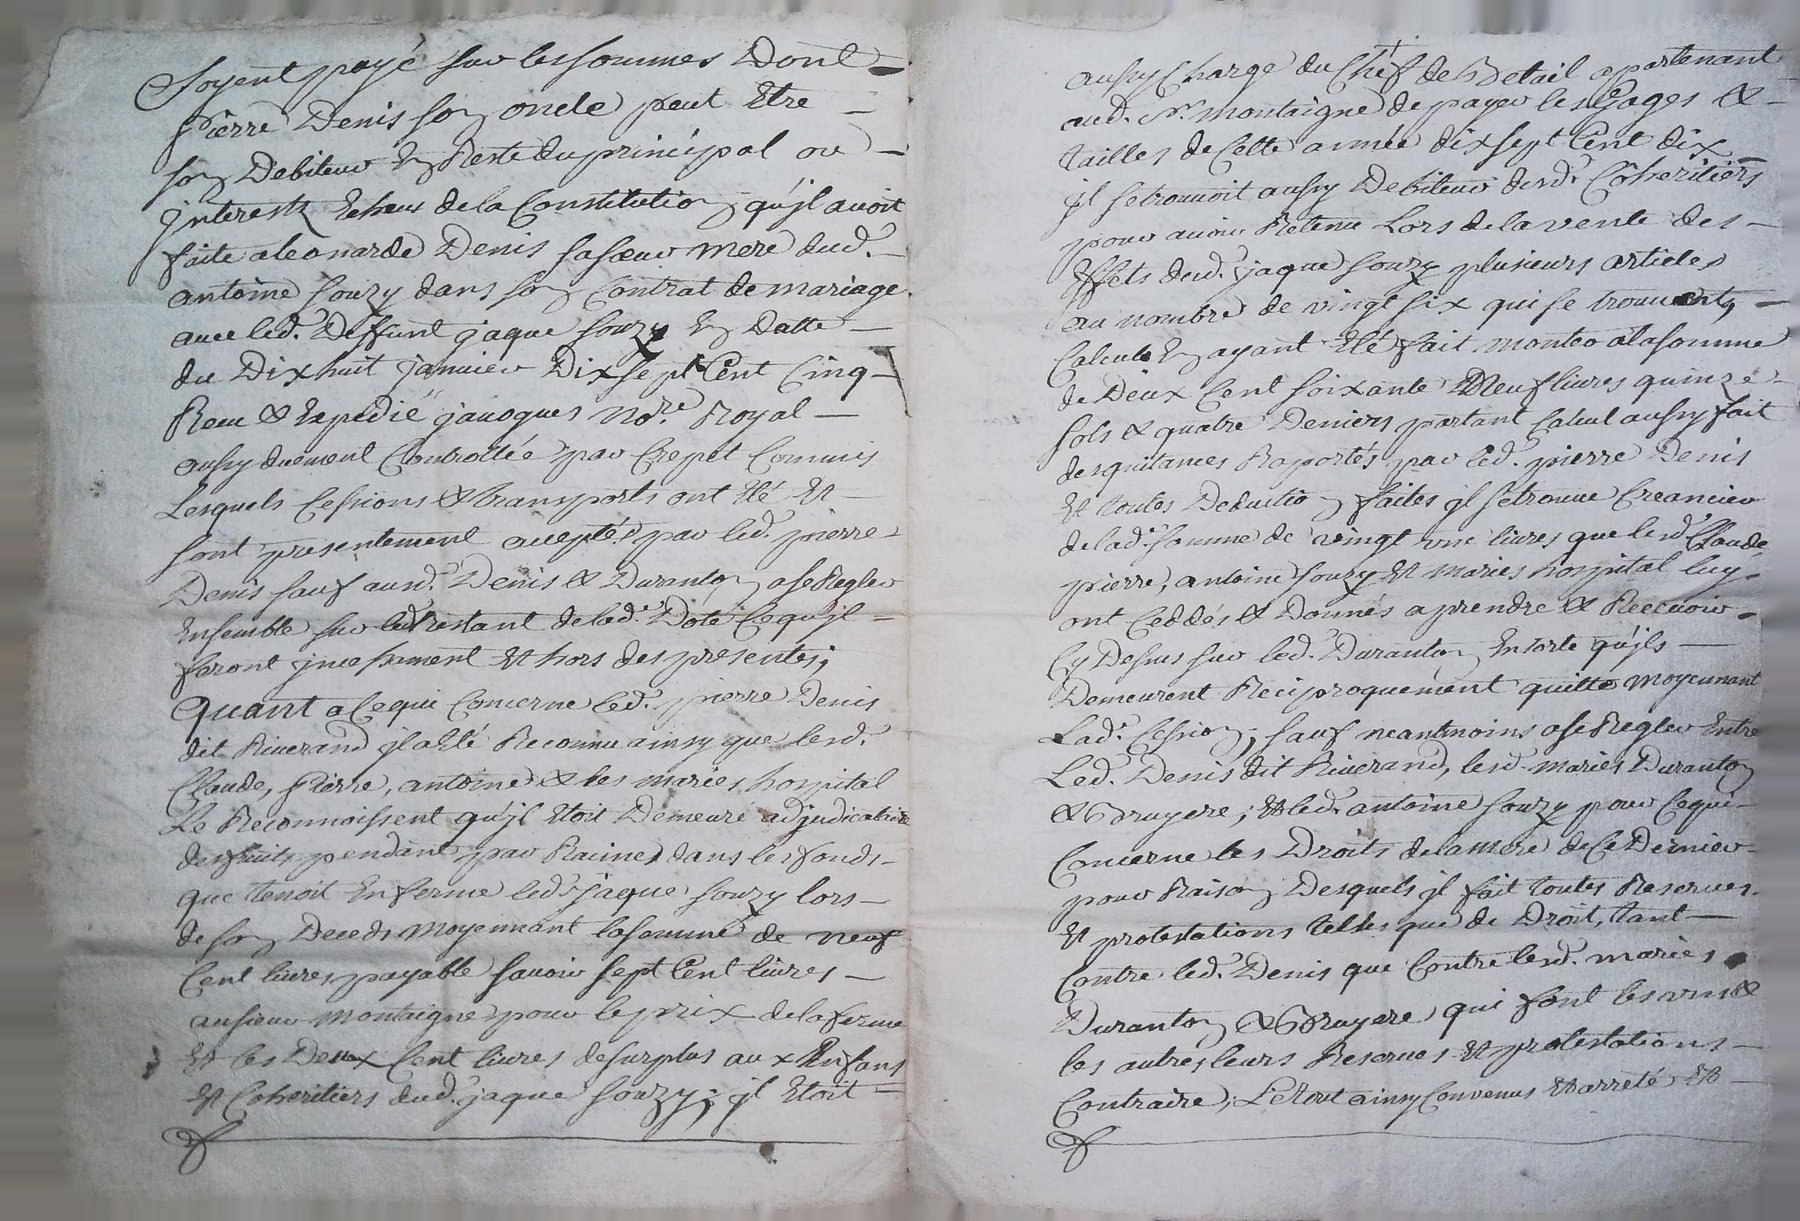 Soyent payé sur les sommes Dont
Pierre Denis son oncle peut Etre
son Debiteur En Reste du principal ou
jnterestz Echeux de la Constitution qu'jl avoit
faite a leonarde Denis sa sœur mere dud.
antoine souzy dans son Contrat de mariage
avec led. Deffunt jaque souzy En Datte
du Dixhuit janvier Dix sept Cent Cinq
Receu & Expedié javogues No.re Royal
aussy duement Controllée par Crepet Commis
Lesquels Cessions & transports ont Eté Et
sont presentement acceptés par led. pierre
Denis sauf ausd. Denis & Duranton a se Regler
Ensemble sur led restant de lad. Dote Ce qu'jl
feront jncessament Et hors des presentes;
Quant a Ce qui Concerne led. pierre Denis
dit Riverand jl a Eté Reconnu ainsy que lesd.
Claude, Pierre, antoine & les mariés hospital
Le Reconnoissent qu'jl Etoit Demeuré adjudicataire
des fruits pendant par Racines dans les fonds
que tenoit En ferme led. jaque souzy lors
de son Deceds moyennant la somme de neuf
Cent livres payable savoir sept Cent livres
au sieur Montaigne pour le prix de la ferme
Et les Deux Cent livres de surplus aux Enfans
Et Coheritiers dud. jaque souzy; jl Etoit
aussy Chargé du Chef de Betail apartenant
aud. Sr. montaigne de payer les Gages &
tailles de Cette année dix sept Cent dix
jl se trouvoit aussy Debiteur desd. Coheritiers
pour avoir Retenu Lors de la vente des
Effets dud. jaque souzy plusieurs articles
au nombre de vingt six qui se trouvent,
Calcule En ayant Eté fait monter a la somme
de Deux Cent soixante Neuf livres quinze
sols & quatre Deniers partant Calcul aussy fait
des quitances Raportés par led. pierre Denis
Et toutes Deduction faites jl se trouve Creancier
de lad. somme de vingt une livres que lesd. Claude
pierre, antoine souzy Et mariés hospital luy
ont Ceddés & Donnés a prendre & Recevoir
Cy Dessus sur led. Duranton En sorte qu'jls
Demeurent Reciproquement quitte moyennant
Lad. Cession; sauf neantmoins a se Regler Entre
Led. Denis dit Riverand, lesd. mariés Duranton
& Bruyere; Et led. antoine souzy pour Ce qui
Concerne les Droits de la mere de Ce Dernier
pour Raison Desquels jl fait toutes Reserves
Et protestations telles que de Droit, tant
Contre led. Denis que Contre lesd. mariés
Duranton & Bruyere, qui font les uns &
les autres leurs Reserves Et protestations
Contraire; Le tout ainsy Convenus Et arreté Et